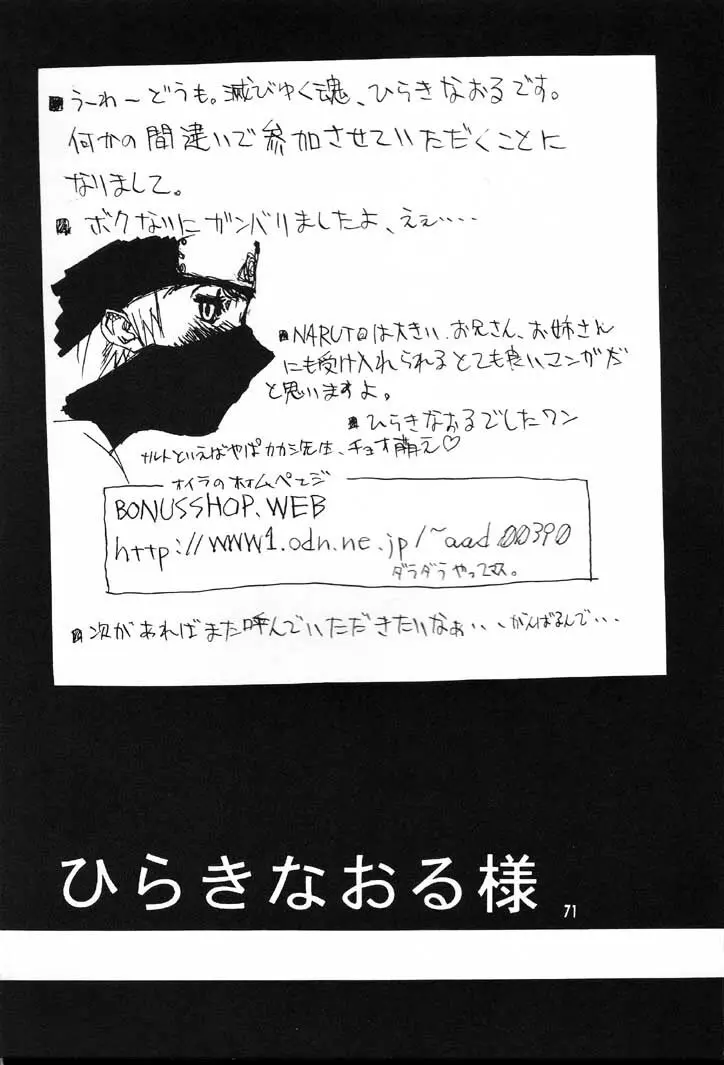 ■うーわーどうも。滅びゆく魂、ひらきなおるです。
何かの間違いで参加させていただくことに
なりまして。
■ボクなりにガンバリましたよ、えぇ‥‥
■NARUTOは大きい、お兄さん、お姉さん
にも受け入れられるとても良いマンガだ
と思いますよ。
■ひらきなおるでしたワン
ナルトといえばやぱカカシ先生、チョオ萌え♡
オイラのホォムペェジ
BONUSSHOP.WEB
http://www1.odn.ne.jp/~aad00390
ダラダラやってマス。
■次があればまた呼んでいただきたいなぁ‥、がんばるんで‥‥
ひらきなおる様
71